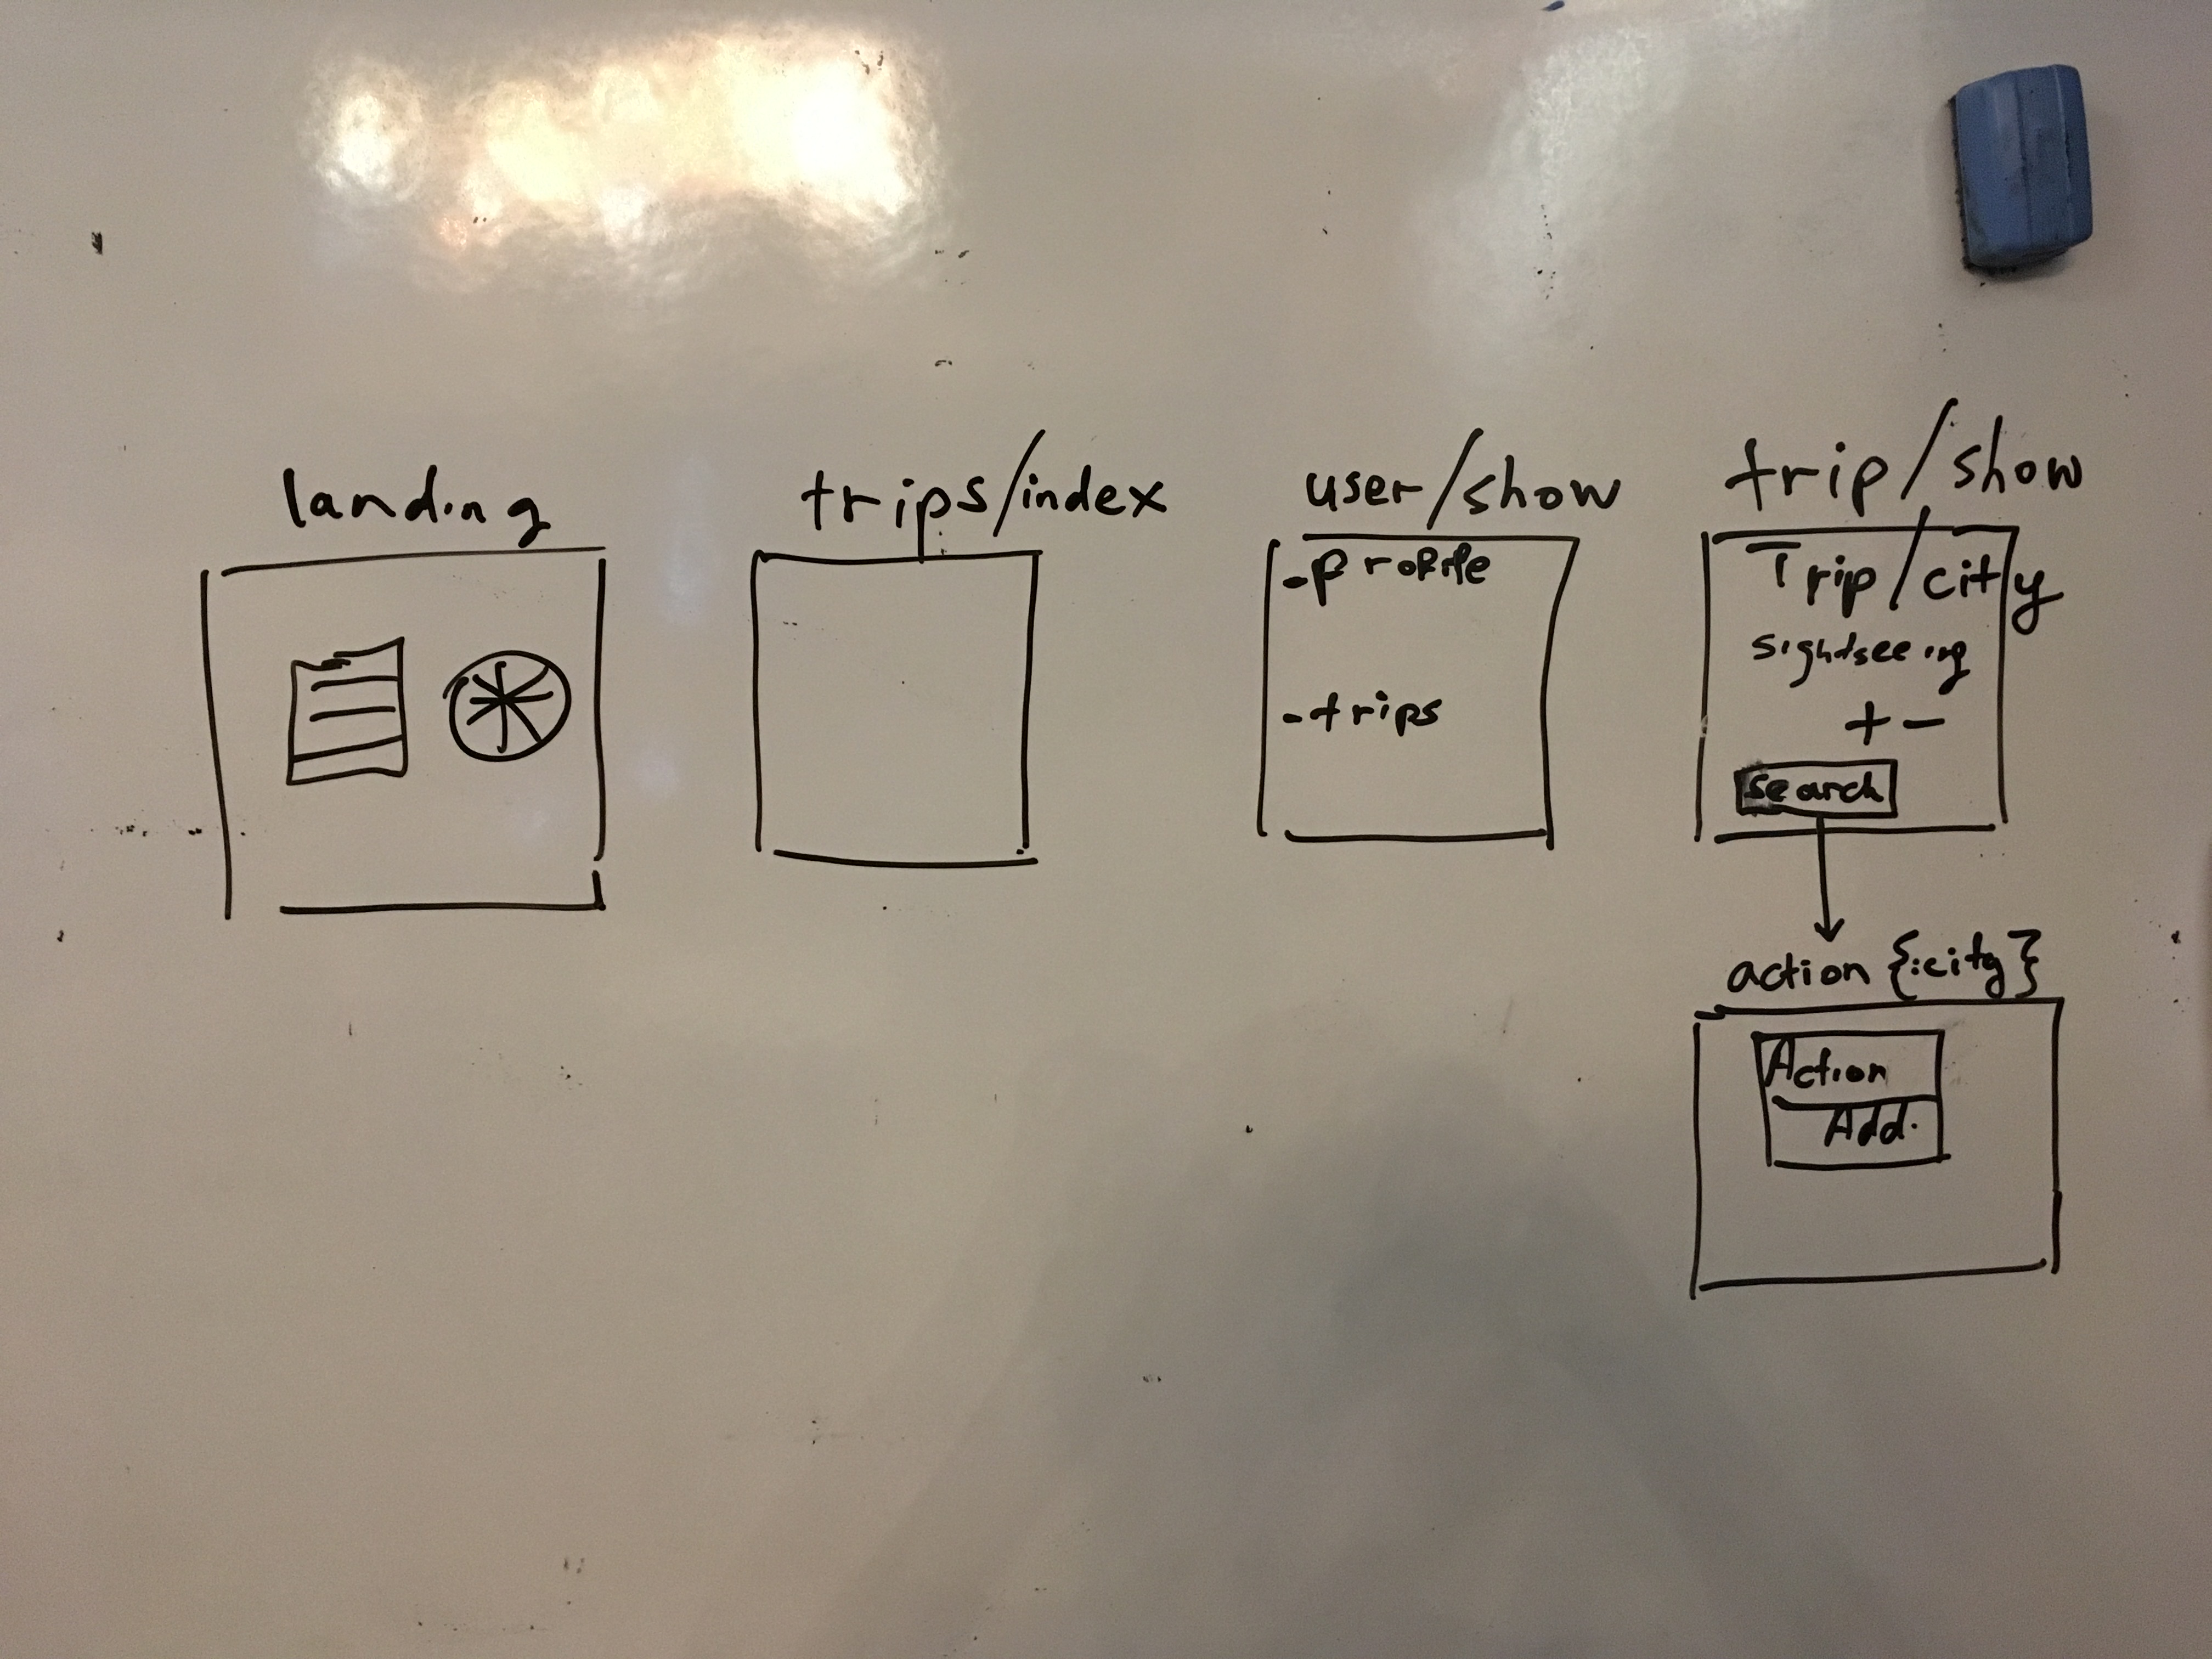 landing
trips/index
user/show
-profile
-trips
trip/show
Trip/city
sightseeing
+ -
search
action {:city}
Action
Add.